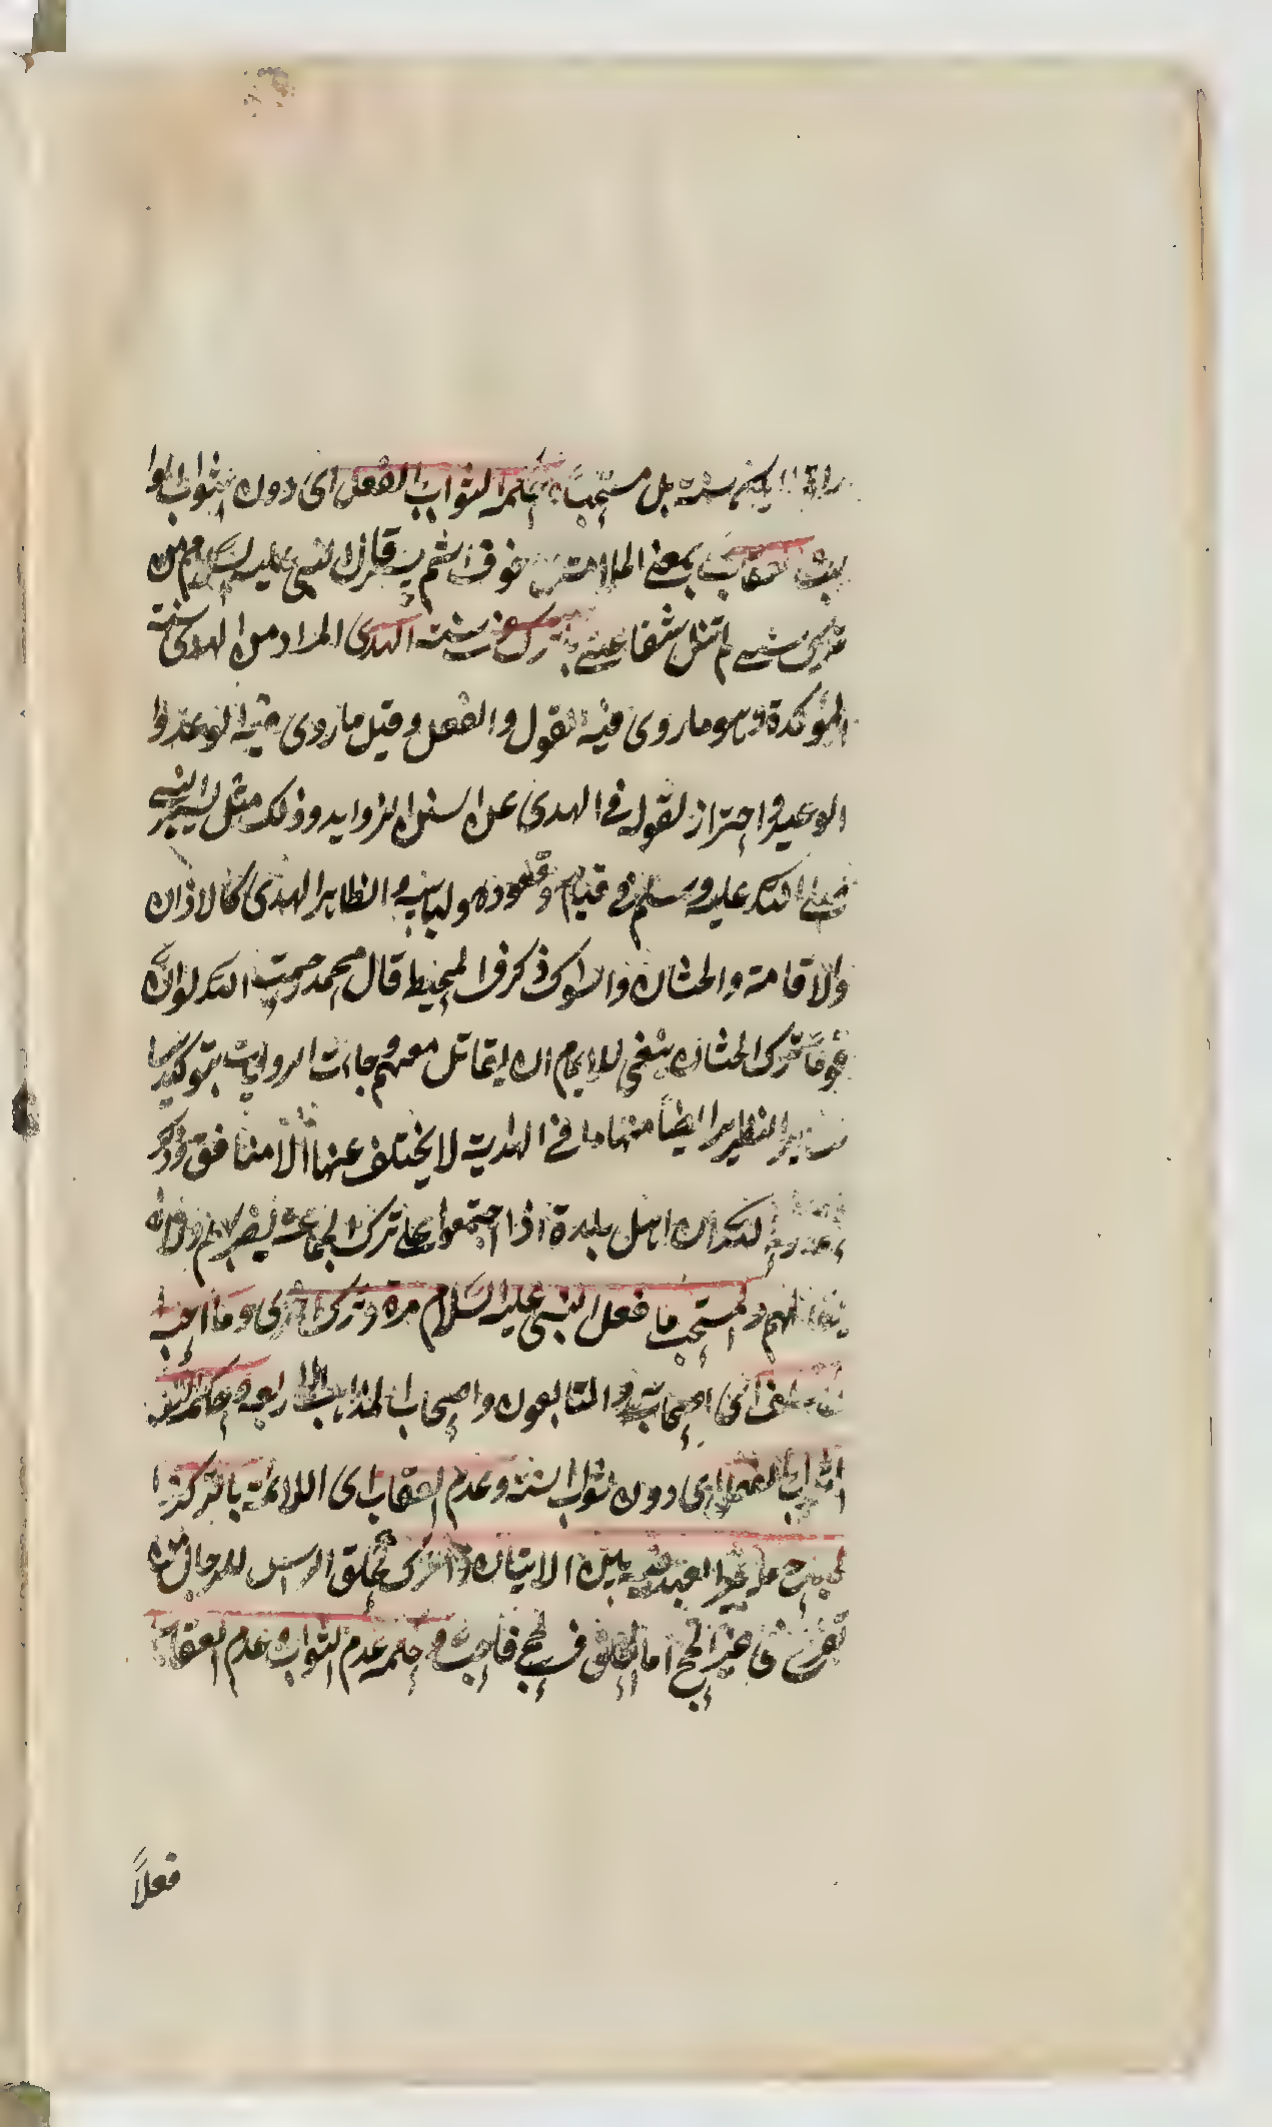 يكن سنة بل مستحبا وحكمه الثواب بالفعل اى دون ثواب الوا
العقاب بمعنى الملامة من خوف اثم يسير قال النبى عليه السلام من
ترك سنتى لم تنل شفاعتى بترك سنة الهدى المراد من الهدى سنة
المؤكدة وهو ما روى فيه القول والفعل وقيل ما روى فيه الوعد وا
الوعيد واحتراز لقوله فى الهدى عن السنن الزوايد وذلك مثل سير النبى
صلى الله عليه وسلم فى قيامه وقعوده ولباسه والظاهر الهدى كالاذان
والاقامة والختان والسواك ذكر فى المحيط قال محمد رحمت الله لو ان
قوما ترك الختان ينبغى للامام ان يقاتل معهم وجاءت الروايات بتوكيدها
النظاير ايضا منها ما فى الهداية لا يختلف عنها الا منافق وذكر
الله ان اهل بلدة اذا اجتمعوا على ترك الجماعة نضربهم ولا
لهم والمستحب ما فعل النبى عليه السلام مرة وترك اخرى وما احبه
السلف اى اصحابه والتابعون واصحاب المذاهب الاربعه وحكمه
الثواب بالفعل اى دون ثواب السنة وعدم العقاب اى اللائمة بالترك
المباح ما يخير العبد فيه بين الاتيان والترك كحلق الراس للرجال من
تفرض فى غير الحج اما الحلق فى الحج فواجب وحكمه عدم الثواب وعدم العقاب
فعلاً